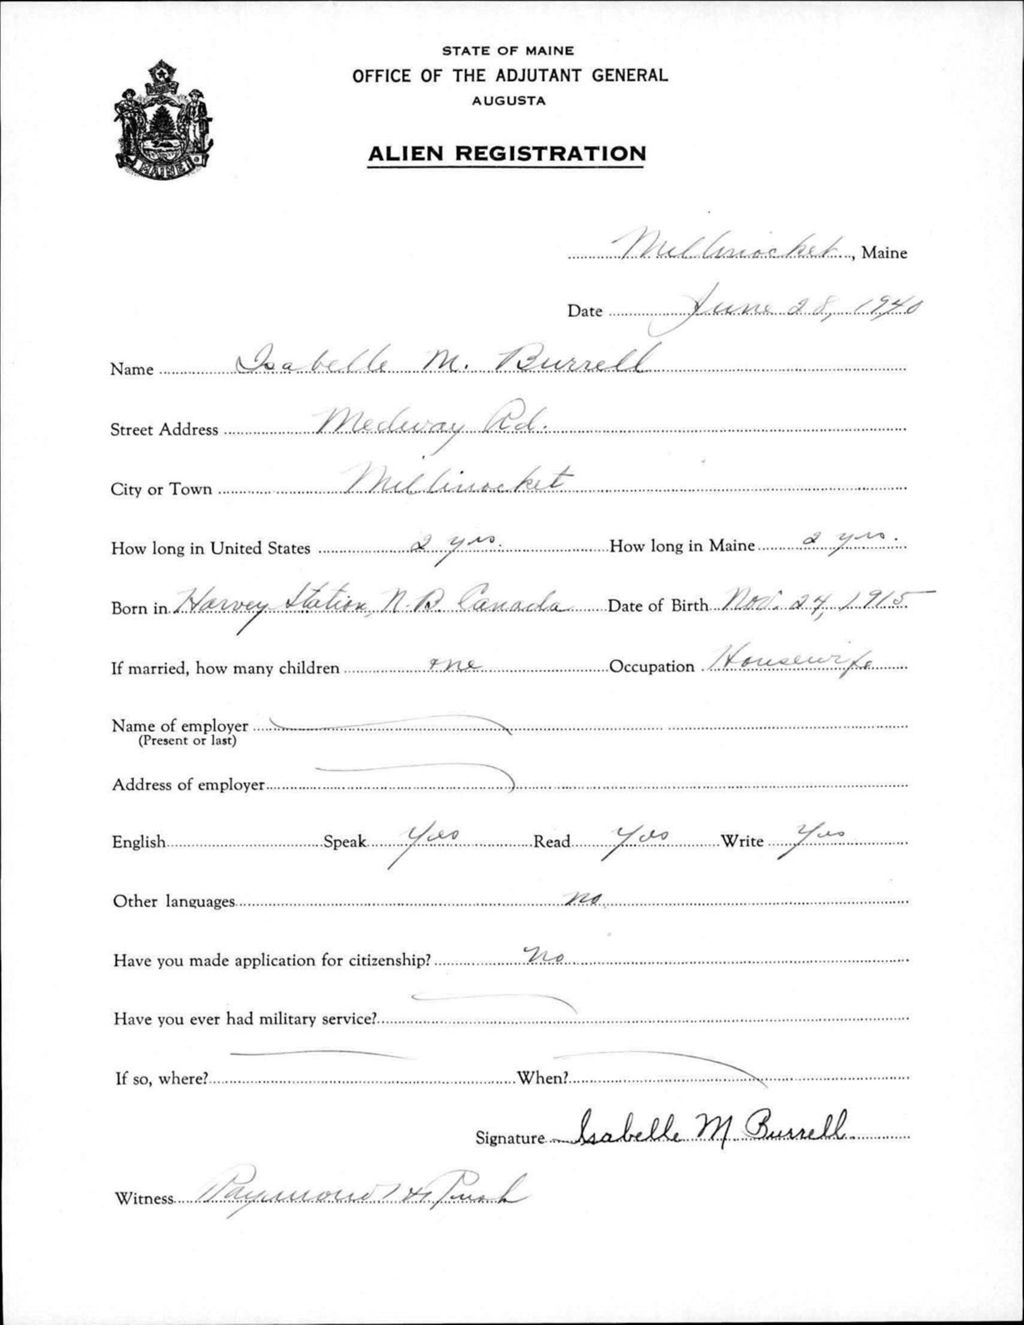 STATE OF MAINE
OFFICE OF THE ADJUTANT GENERAL
AUGUSTA
ALIEN REGISTRATION
MAINE
Millinocket, Maine
Date June 28, 1940
Name Isabelle M. Burrell
Street Address Medway Rd.
City or Town Millinocket
How long in United States 2 yrs. How long in Maine 2 yrs.
Born in Harvey Station, N. B. Canada Date of Birth Nov. 24, 1915
If married, how many children one Occupation Housewife
Name of employer
(Present or last)
Address of employer
English Speak Yes Read Yes Write Yes
Other languages no
Have you made application for citizenship? No
Have you ever had military service?
If so, where? When?
Signature Isabelle M Burrell
Witness Raymond H